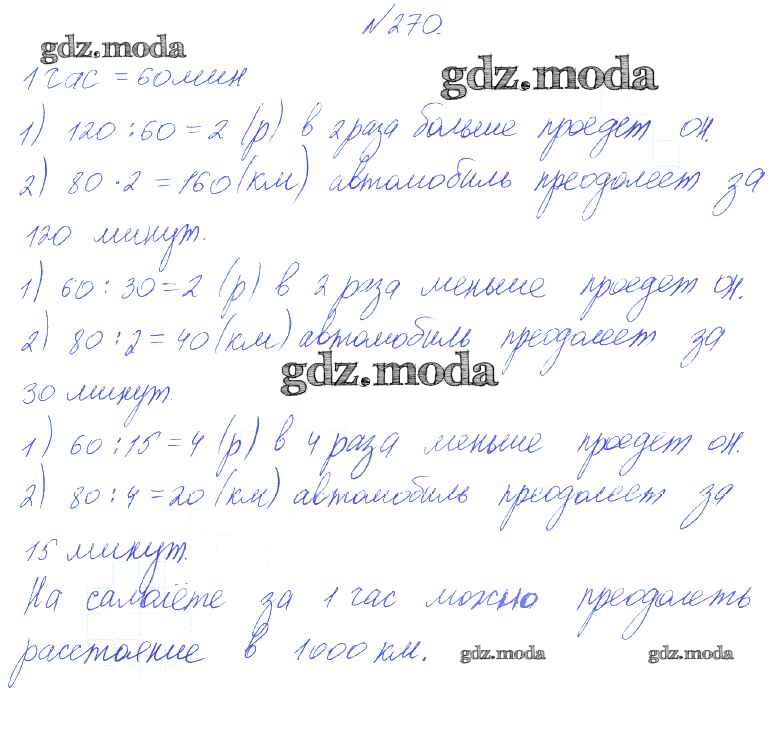 №270.
gdz.moda
1 час = 60 мин
gdz.moda
1) 120 : 60 = 2 (р) в 2 раза больше проедет он.
2) 80 · 2 = 160 (км) автомобиль преодолеет за
120 минут.
1) 60 : 30 = 2 (р) в 2 раза меньше проедет он.
2) 80 : 2 = 40 (км) автомобиль преодолеет за
gdz.moda
30 минут.
1) 60 : 15 = 4 (р) в 4 раза меньше проедет он.
2) 80 : 4 = 20 (км) автомобиль преодолеет за
15 минут.
На самолёте за 1 час можно преодолеть
расстояние в 1000 км.
gdz.moda
gdz.moda